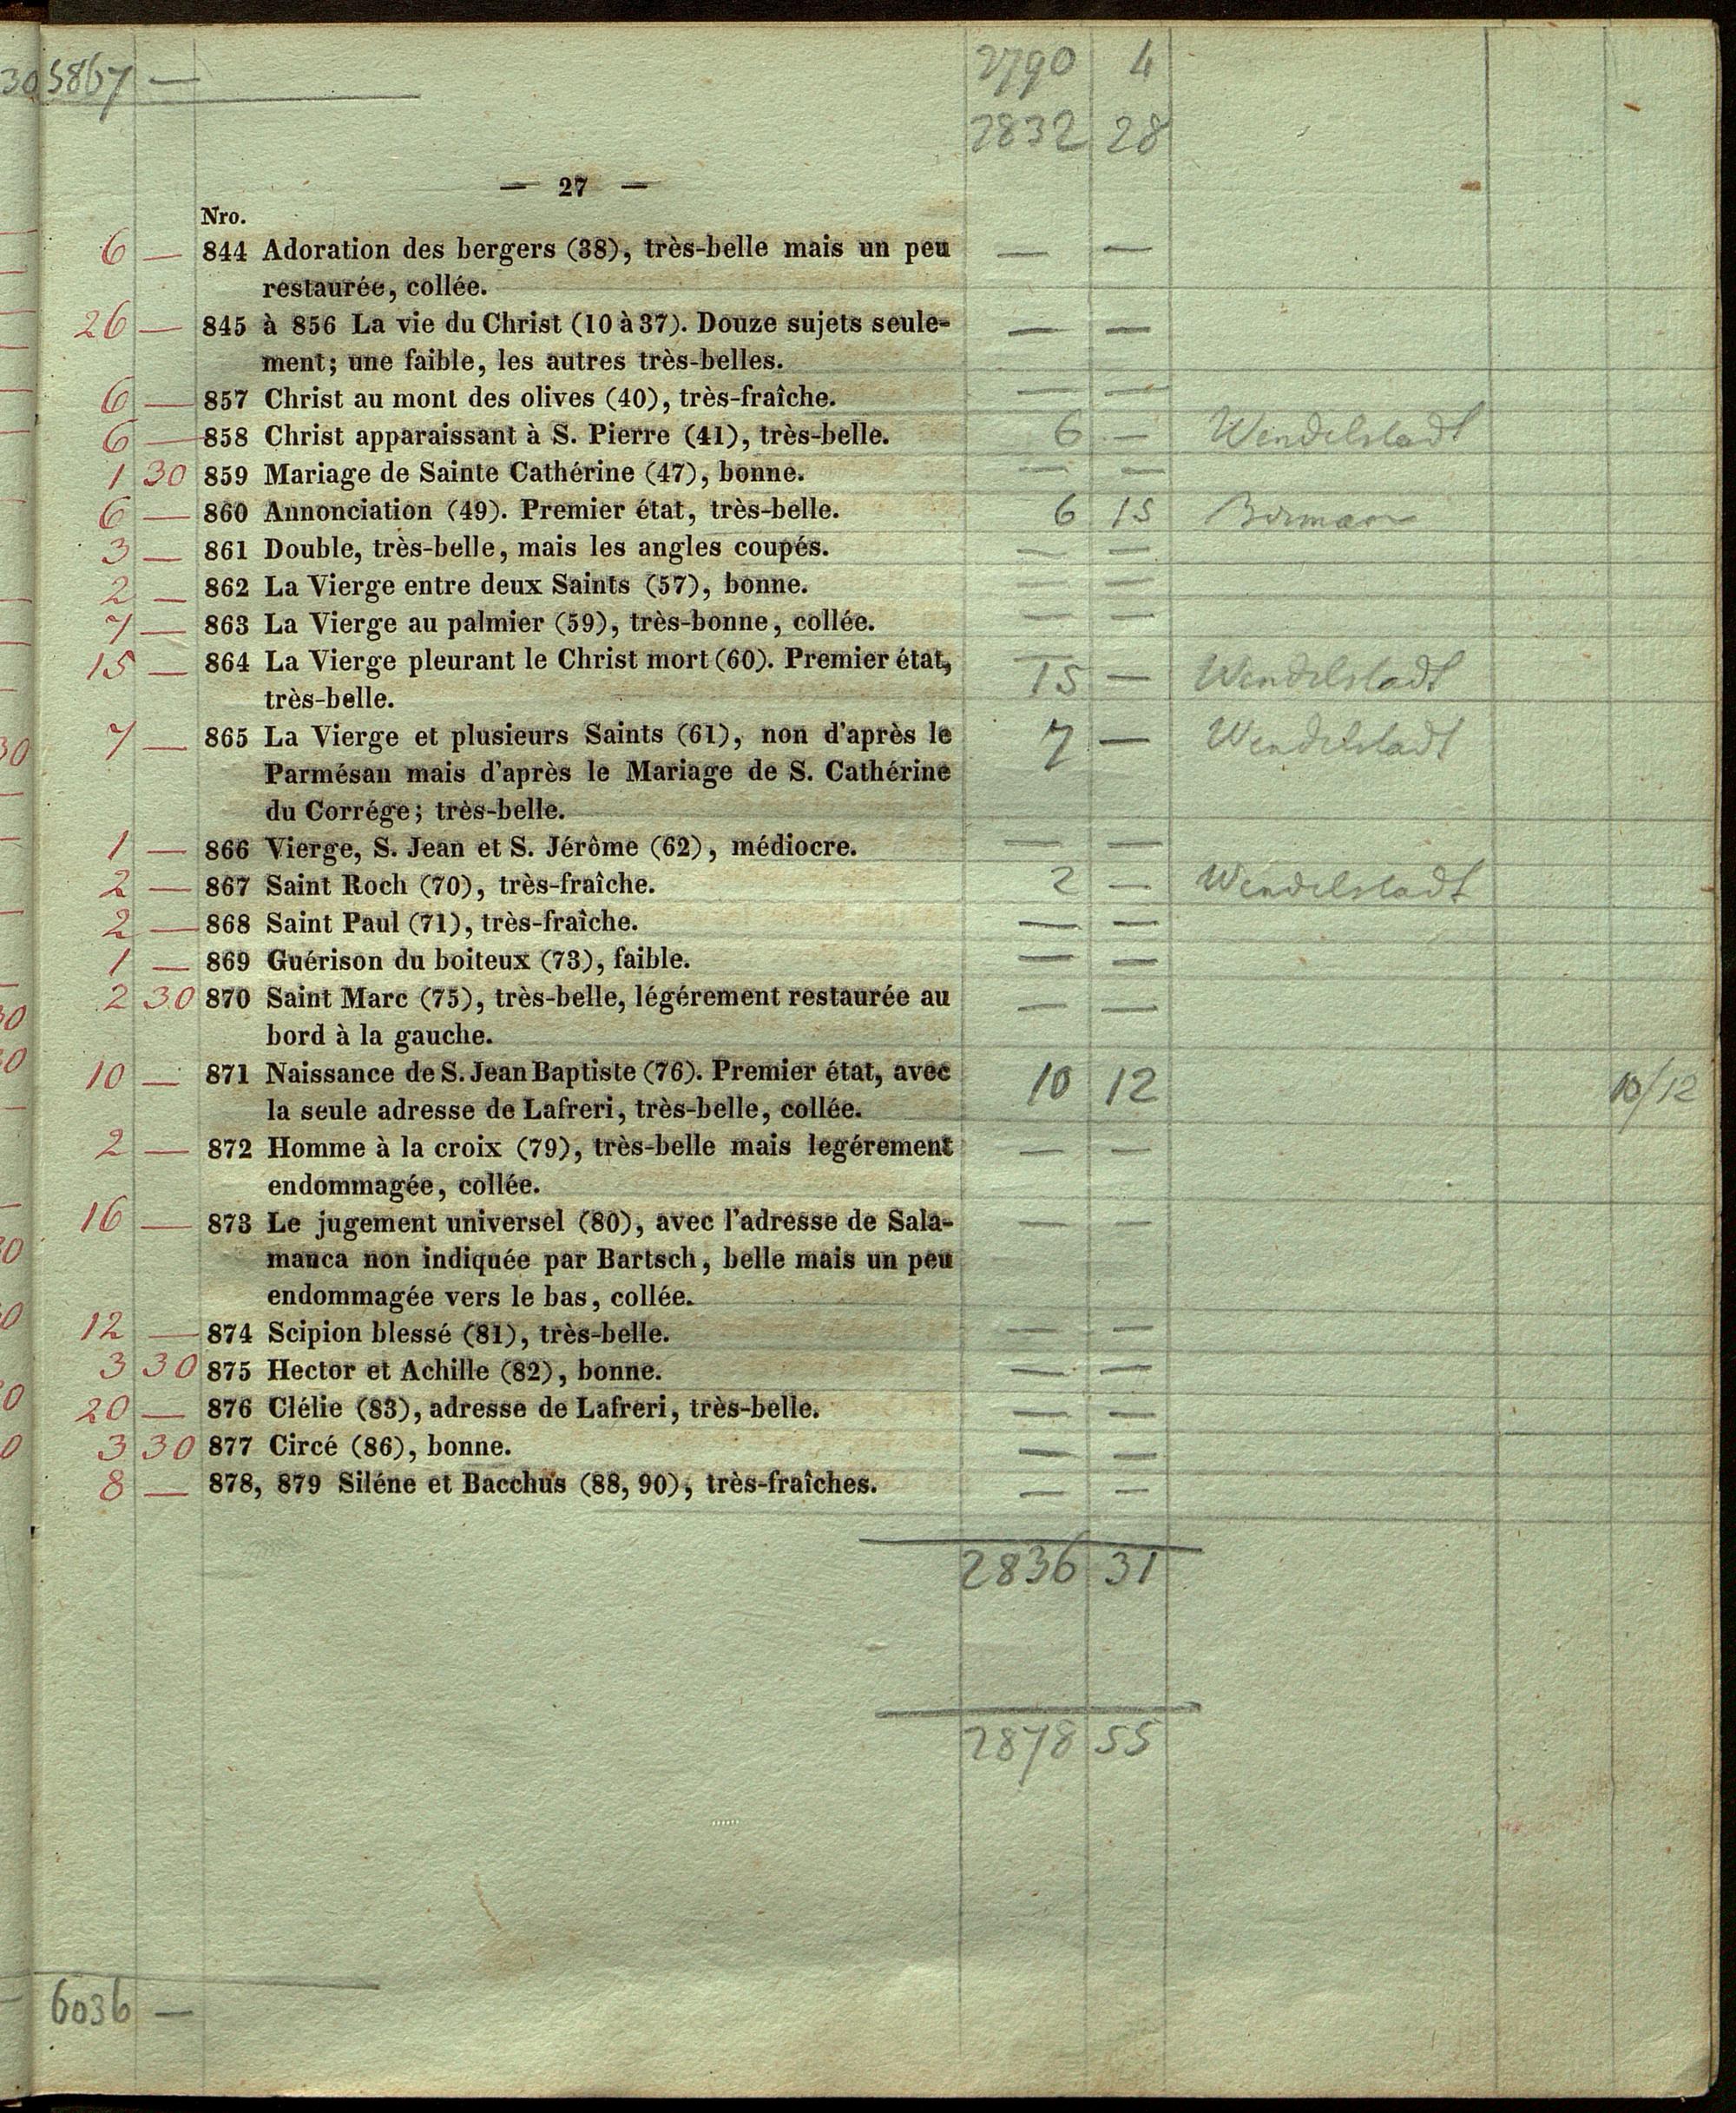 5867 — 2790 4
2832 28
— 27 —
Nro.
6 — 844 Adoration des bergers (38), très-belle mais un peu — —
restaurée, collée.
26 — 845 à 856 La vie du Christ (10 à 37). Douze sujets seule- — —
ment; une faible, les autres très-belles.
6 — 857 Christ au mont des olives (40), très-fraîche. — —
6 — 858 Christ apparaissant à S. Pierre (41), très-belle. 6 — Wendelstadt
1 30 859 Mariage de Sainte Cathérine (47), bonne. — —
6 — 860 Annonciation (49). Premier état, très-belle. 6 15
3 — 861 Double, très-belle, mais les angles coupés. — —
2 — 862 La Vierge entre deux Saints (57), bonne. — —
7 — 863 La Vierge au palmier (59), très-bonne, collée. — —
15 — 864 La Vierge pleurant le Christ mort (60). Premier état, 15 — Wendelstadt
très-belle.
7 — 865 La Vierge et plusieurs Saints (61), non d'après le 7 — Wendelstadt
Parmésan mais d'après le Mariage de S. Cathérine
du Corrége; très-belle.
1 — 866 Vierge, S. Jean et S. Jérôme (62), médiocre. — —
2 — 867 Saint Roch (70), très-fraîche. 2 — Wendelstadt
2 — 868 Saint Paul (71), très-fraîche. — —
1 — 869 Guérison du boiteux (73), faible. — —
2 30 870 Saint Marc (75), très-belle, légérement restaurée au — —
bord à la gauche.
10 — 871 Naissance de S. Jean Baptiste (76). Premier état, avec 10 12 10/12
la seule adresse de Lafreri, très-belle, collée.
2 — 872 Homme à la croix (79), très-belle mais legérement — —
endommagée, collée.
16 — 873 Le jugement universel (80), avec l'adresse de Sala- — —
manca non indiquée par Bartsch, belle mais un peu
endommagée vers le bas, collée.
12 — 874 Scipion blessé (81), très-belle. — —
3 30 875 Hector et Achille (82), bonne. — —
20 — 876 Clélie (83), adresse de Lafreri, très-belle. — —
3 30 877 Circé (86), bonne. — —
8 — 878, 879 Siléne et Bacchus (88, 90), très-fraîches. — —
2836 31
2878 55
6036 —